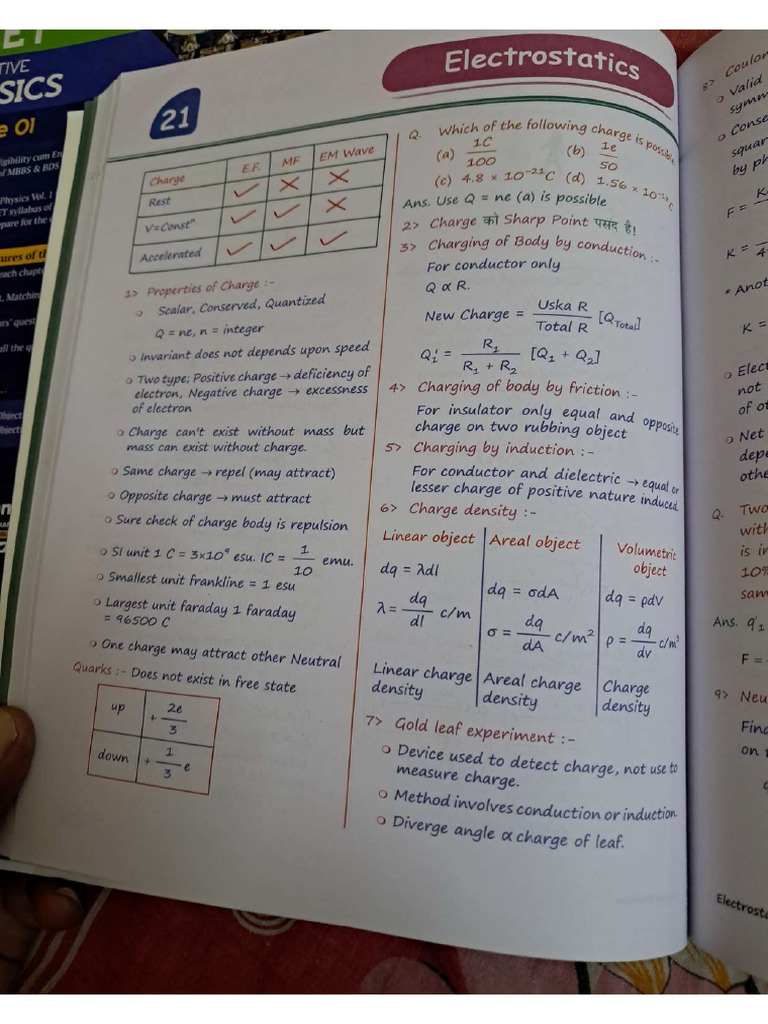 ET
TIVE
SICS
e 01
igibility cum En
of MBBS & BDS
Physics Vol. 1
ET syllabus of
epare for the
ures of th
each chapt
. Matchin
rs' quest
all the q
Object
bject
21
Electrostatics
Charge E.F. MF EM Wave
Rest ✓ ✗ ✗
V=Constⁿ ✓ ✓ ✗
Accelerated ✓ ✓ ✓
1> Properties of Charge :-
Scalar, Conserved, Quantized
Q = ne, n = integer
Invariant does not depends upon speed
Two type; Positive charge → deficiency of
electron, Negative charge → excessness
of electron
Charge can't exist without mass but
mass can exist without charge.
Same charge → repel (may attract)
Opposite charge → must attract
Sure check of charge body is repulsion
SI unit 1 C = 3×10⁹ esu. IC = 1/10 emu.
Smallest unit frankline = 1 esu
Largest unit faraday 1 faraday
= 96500 C
One charge may attract other Neutral
Quarks :- Does not exist in free state
up + 2e/3
down + 1/3 e
Q. Which of the following charge is possible
(a) 1C/100 (b) 1e/50
(c) 4.8 × 10⁻²¹C (d) 1.56 × 10 C
Ans. Use Q = ne (a) is possible
2> Charge को Sharp Point पसंद है!
3> Charging of Body by conduction :-
For conductor only
Q α R.
New Charge = Uska R/Total R [Q_Total]
Q₁' = R₁/(R₁ + R₂) [Q₁ + Q₂]
4> Charging of body by friction :-
For insulator only equal and opposite
charge on two rubbing object
5> Charging by induction :-
For conductor and dielectric → equal or
lesser charge of positive nature induced.
6> Charge density :-
Linear object Areal object Volumetric object
dq = λdl dq = σdA dq = ρdV
λ = dq/dl c/m σ = dq/dA c/m² ρ = dq/dv c/m³
Linear charge density Areal charge density Charge density
7> Gold leaf experiment :-
Device used to detect charge, not use to
measure charge.
Method involves conduction or induction
Diverge angle α charge of leaf.
8> Coulom
Valid
symm
Conse
squar
by ph
F =
K =
* Anot
K =
Elect
not
of ot
Net
depe
othe
Q. Two
with
is in
10%
sam
Ans. q'₁
F =
9> Neu
Find
on t
Electrosta